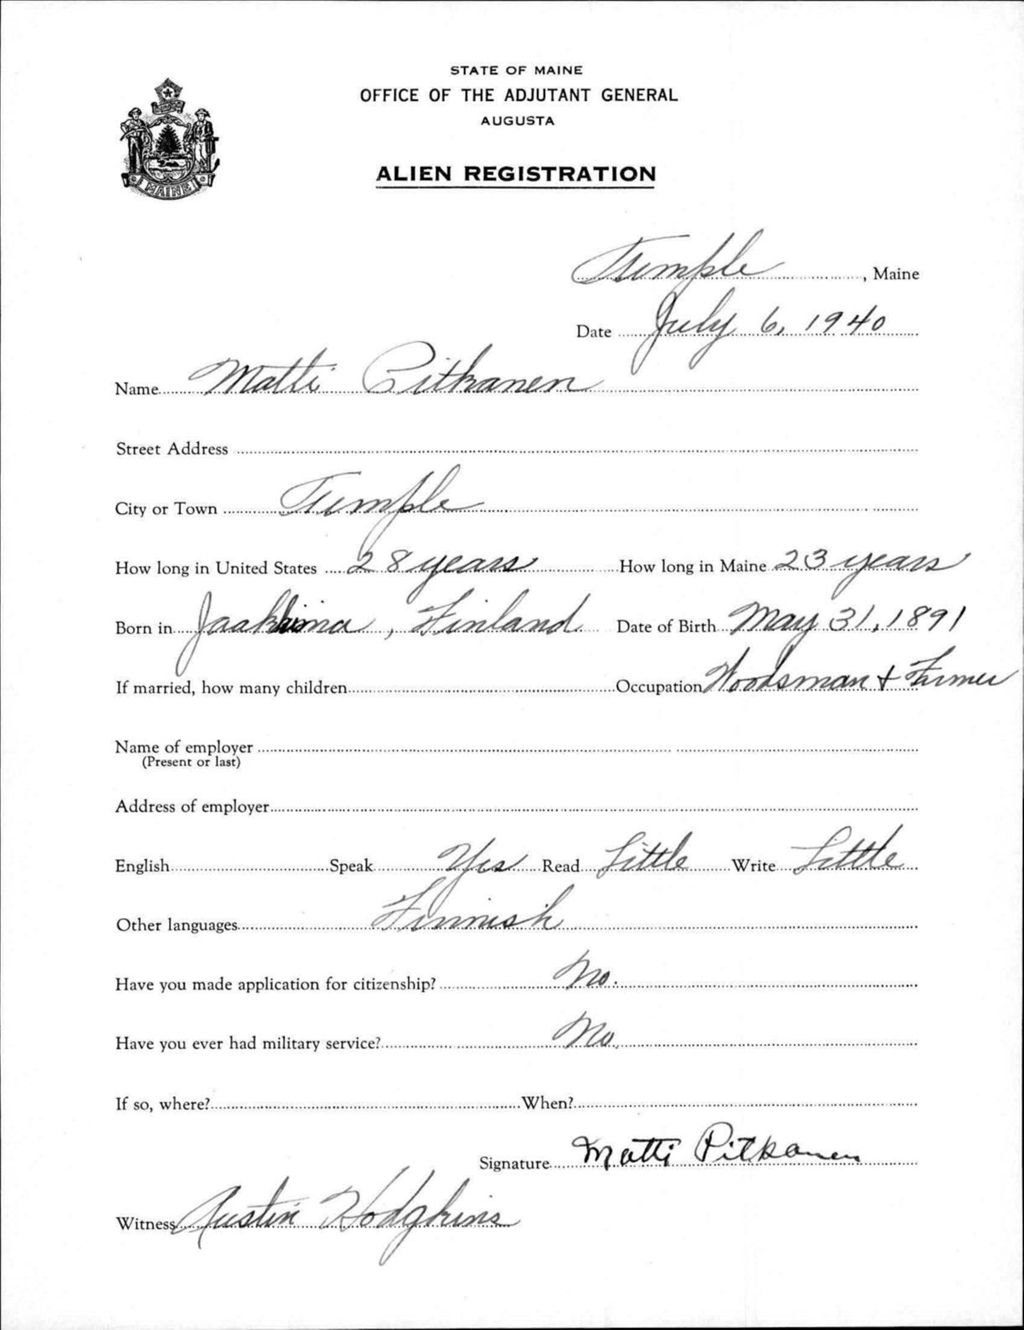 STATE OF MAINE
OFFICE OF THE ADJUTANT GENERAL
AUGUSTA
ALIEN REGISTRATION
MAINE
Temple, Maine
Date July 6, 1940
Name Matti Pitkanen
Street Address
City or Town Temple
How long in United States 28 years How long in Maine 23 years
Born in Jaakkima, Finland Date of Birth May 31, 1891
If married, how many children Occupation Woodsman & Farmer
Name of employer
(Present or last)
Address of employer
English Speak Yes Read Little Write Little
Other languages Finnish
Have you made application for citizenship? No.
Have you ever had military service? No.
If so, where? When?
Signature Matti Pitkanen
Witness Austin Hodgkins